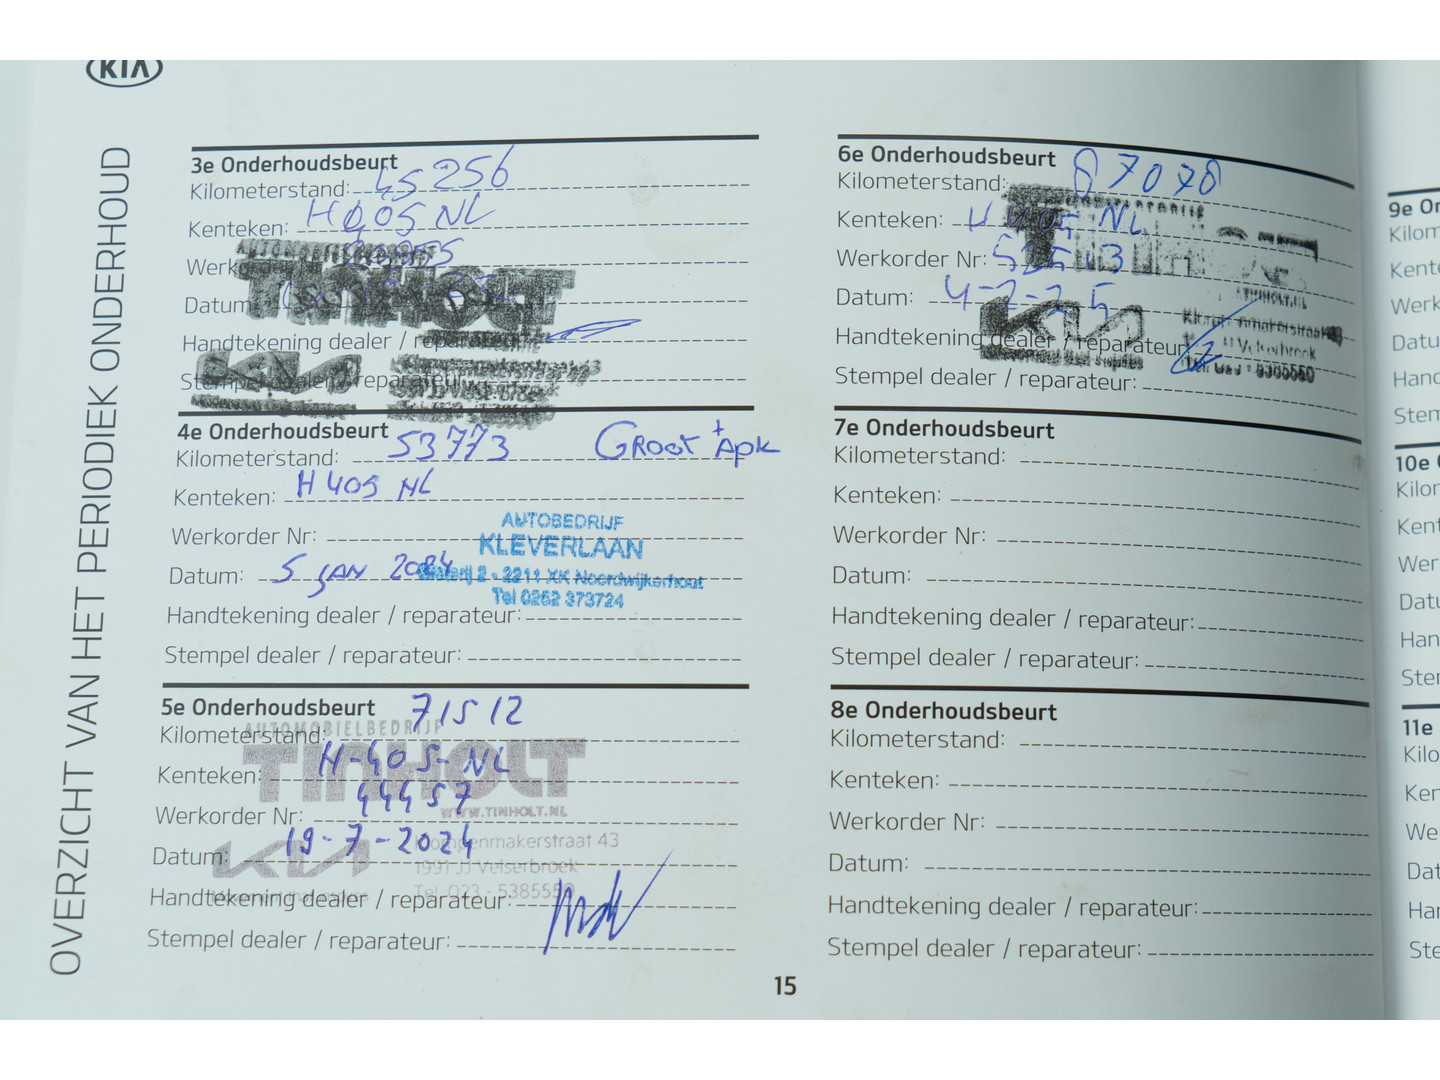 KIA
OVERZICHT VAN HET PERIODIEK ONDERHOUD
3e Onderhoudsbeurt
Kilometerstand: 45256
Kenteken: H405NL
Werkorder Nr
Datum
Handtekening dealer / reparateur
Stempel dealer / reparateur
AUTOMOBIELBEDRIJF
TINHOLT
KIA
4e Onderhoudsbeurt
Kilometerstand: 53773 GROOT + APK
Kenteken: H 405 NL
Werkorder Nr:
Datum: 5 JAN 2024
Handtekening dealer / reparateur:
Stempel dealer / reparateur:
AUTOBEDRIJF
KLEVERLAAN
2 - 2211 XK Noordwijkerhout
Tel 0252 373724
5e Onderhoudsbeurt
Kilometerstand: 71512
Kenteken: H-405-NL
Werkorder Nr: 44457
Datum: 19-7-2024
Handtekening dealer / reparateur:
Stempel dealer / reparateur:
AUTOMOBIELBEDRIJF
TINHOLT
WWW.TINHOLT.NL
KIA
Klompenmakerstraat 43
1991 JJ Velserbroek
Tel. 023 - 5385550
15
6e Onderhoudsbeurt
Kilometerstand: 87078
Kenteken: H405 NL
Werkorder Nr: 52513
Datum: 4-2-25
Handtekening dealer / reparateur:
Stempel dealer / reparateur:
TINHOLT
KIA
Velserbroek
5385550
7e Onderhoudsbeurt
Kilometerstand:
Kenteken:
Werkorder Nr:
Datum:
Handtekening dealer / reparateur:
Stempel dealer / reparateur:
8e Onderhoudsbeurt
Kilometerstand:
Kenteken:
Werkorder Nr:
Datum:
Handtekening dealer / reparateur:
Stempel dealer / reparateur:
9e On
Kilom
Kente
Werk
Datu
Hand
Stem
10e
Kilor
Kent
Wer
Datu
Han
Ster
11e
Kilo
Ken
We
Dat
Har
Ste